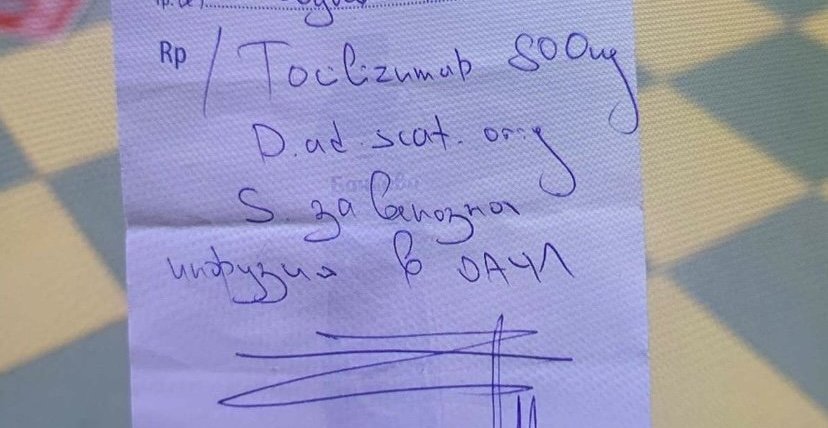 Rp / Tocilizumab 800mg
D. ad. scat. orig
S. за венозна
инфузия в ОАИЛ